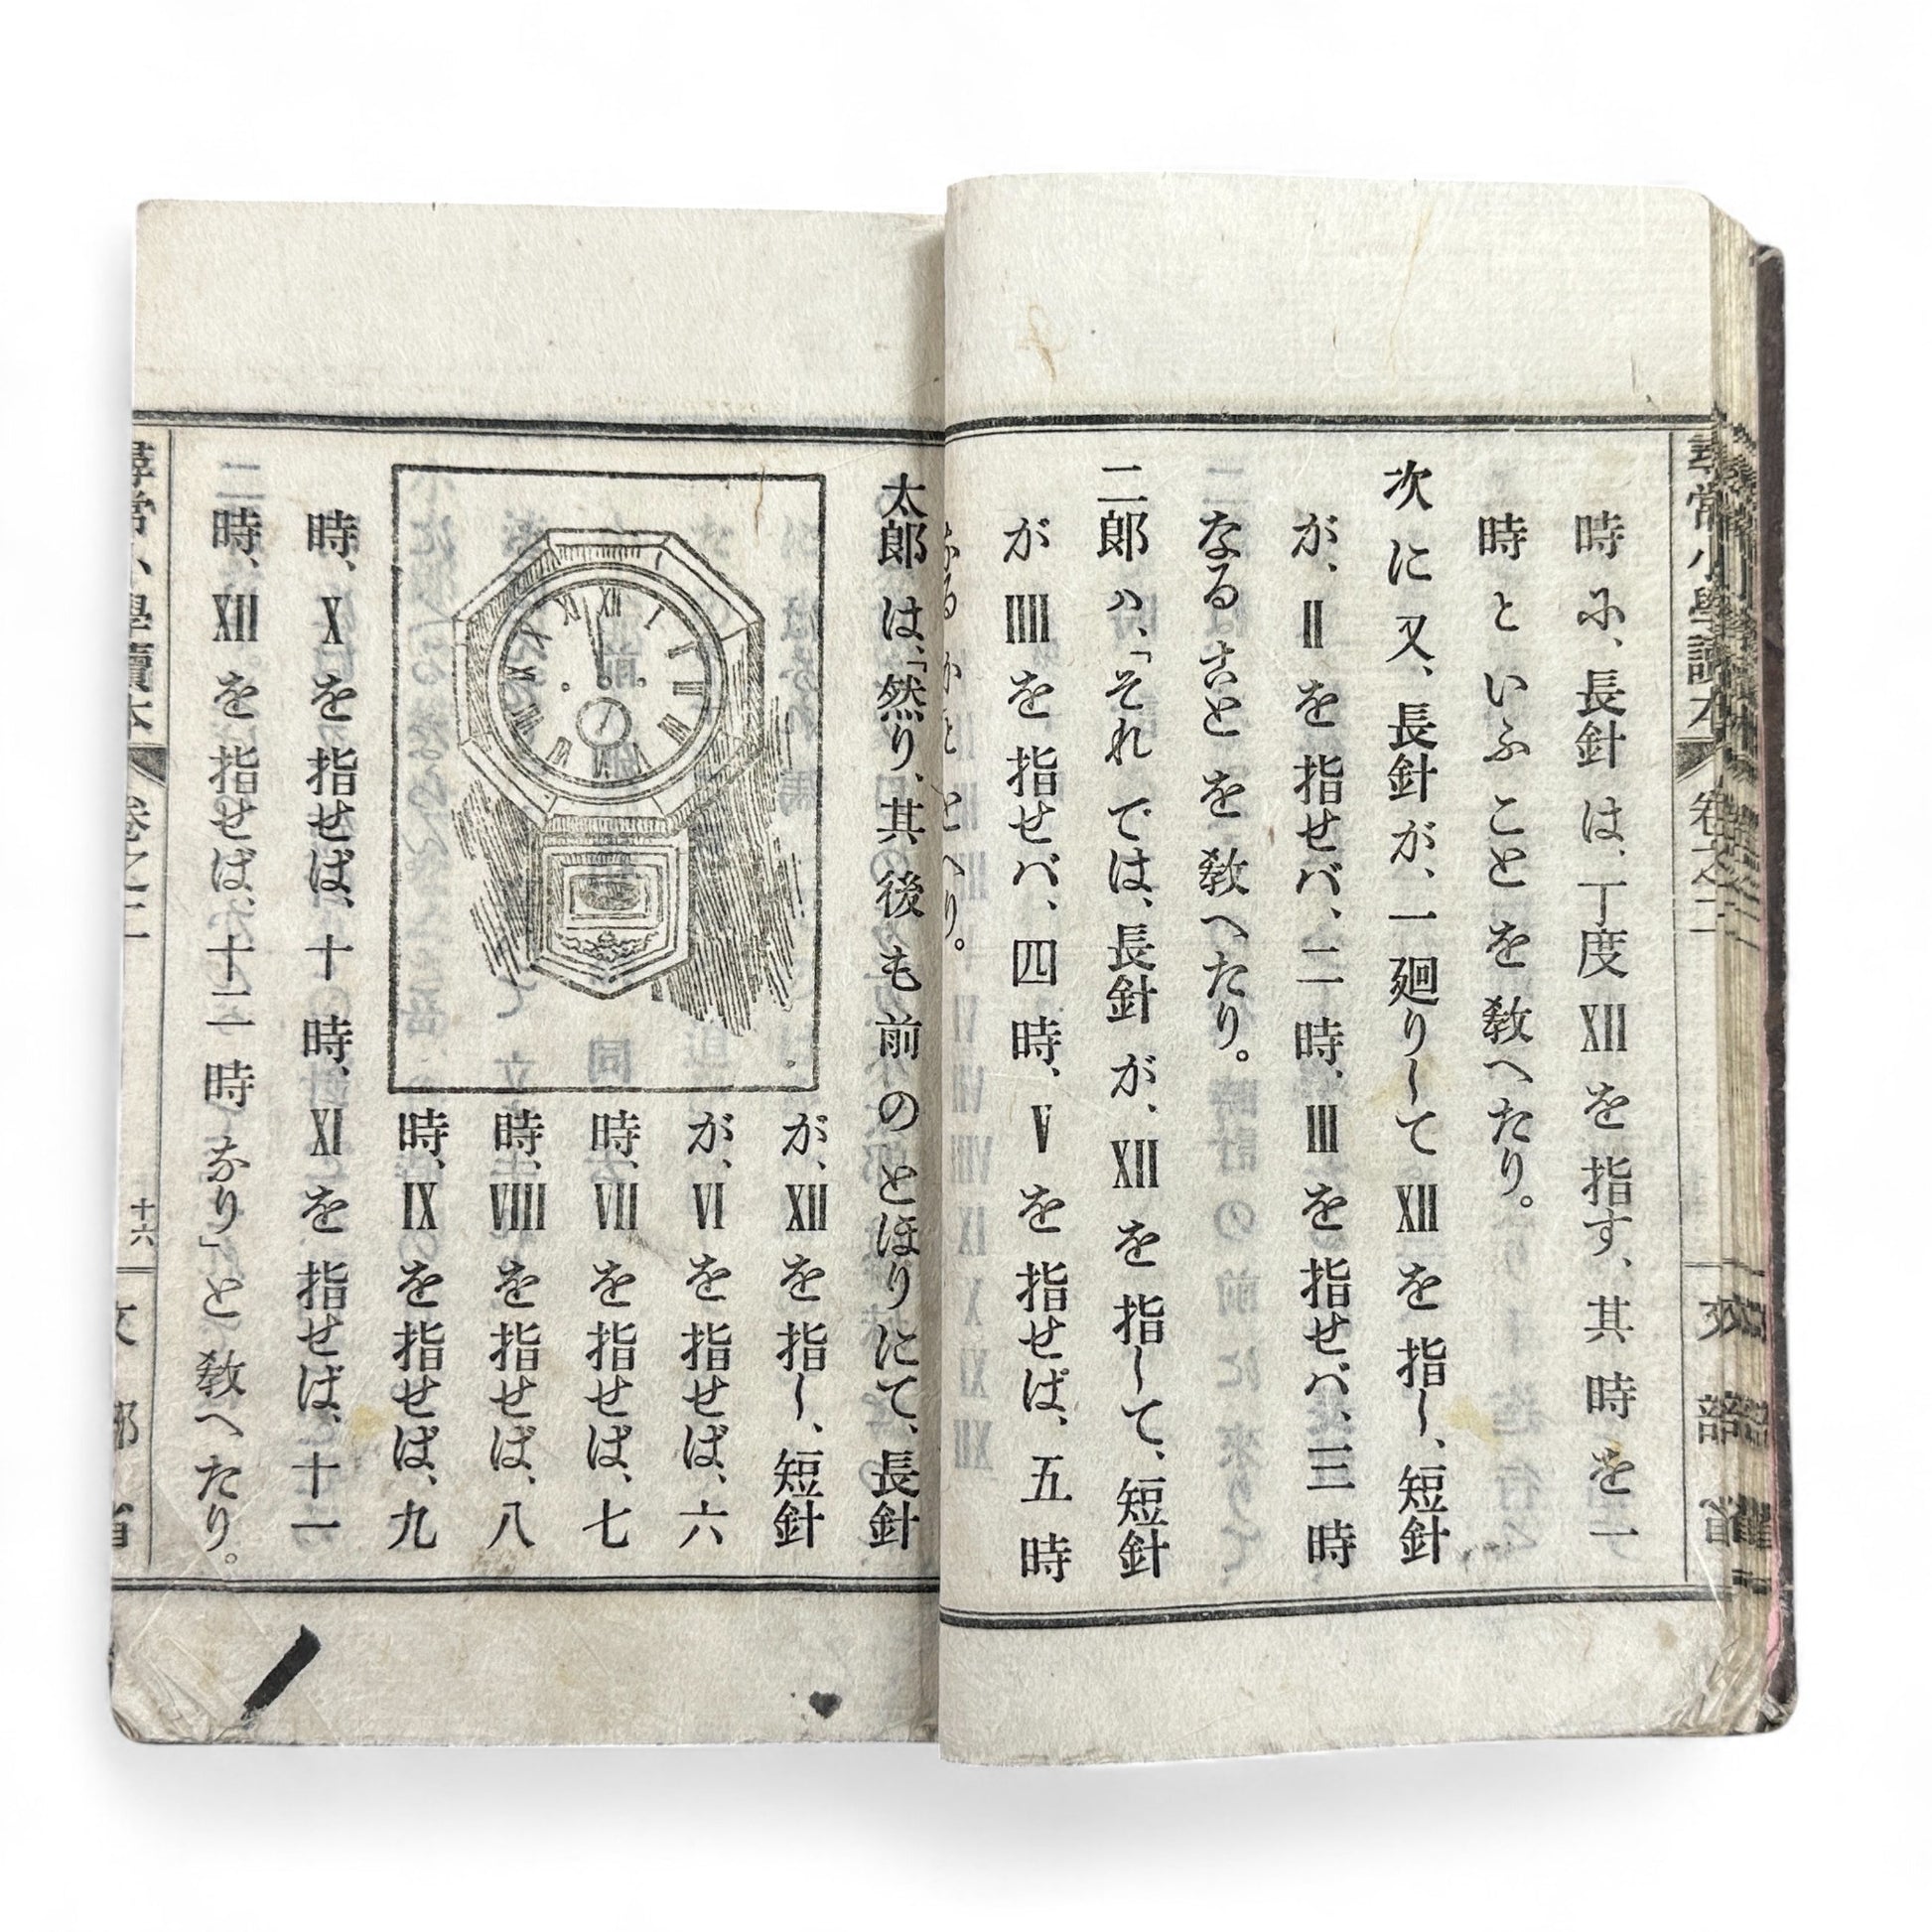 時に、長針は、丁度XIIを指す、其時を一
時といふことを教へたり。
次に又、長針が、一廻りしてXIIを指し、短針
が、IIを指せバ、二時、IIIを指せバ、三時
なることを教へたり。
二郎ハ、「それでは、長針が、XIIを指して、短針
がIIIIを指せバ、四時、Vを指せば、五時
なるかな」とへり。
太郎は、「然り、其後も前のとほりにて、長針
が、XIIを指し、短針
が、VIを指せば、六
時、VIIを指せば、七
時、VIIIを指せば、八
時、IXを指せば、九
時、Xを指せば、十時、XIを指せば、十一
時、XIIを指せば、十二時なり」と教へたり。
尋常小學讀本
卷之二
十六
文部省